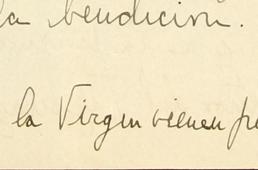 la bendición.
la Virgen vienen